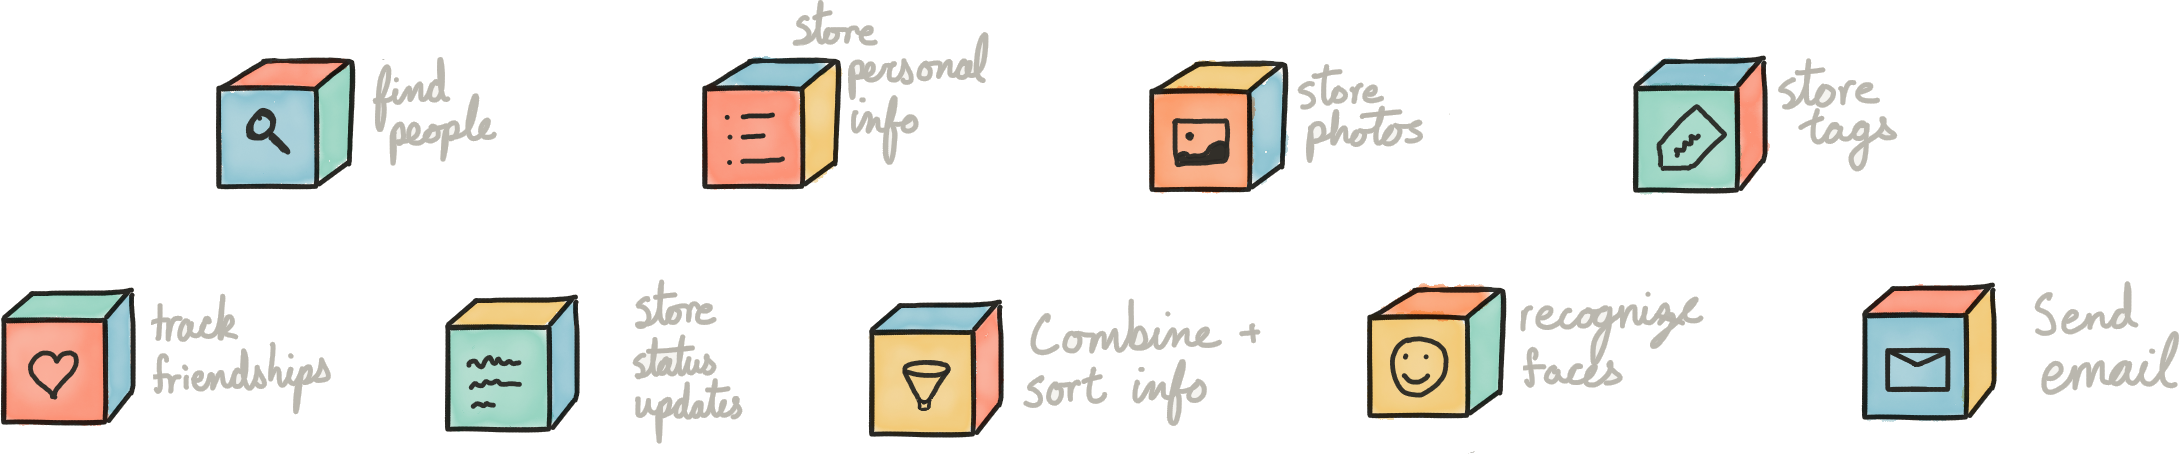 find
people
store
personal
info
store
photos
store
tags
track
friendships
store
status
updates
Combine +
sort info
recognize
faces
Send
email